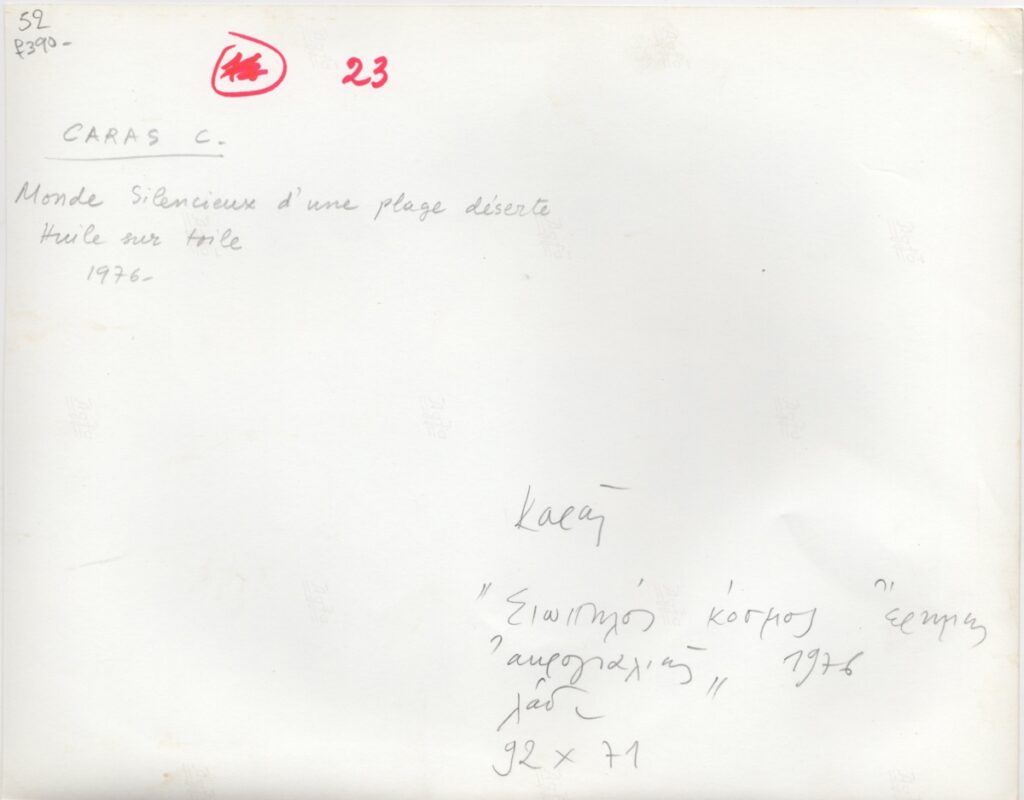 52
£390-
23
CARAS C.
Monde Silencieux d'une plage déserte
Huile sur toile
1976-
Καρᾶς
"Σιωπηλός κόσμος ἔρημης
ἀκρογιαλιᾶς" 1976
λάδι
92 x 71